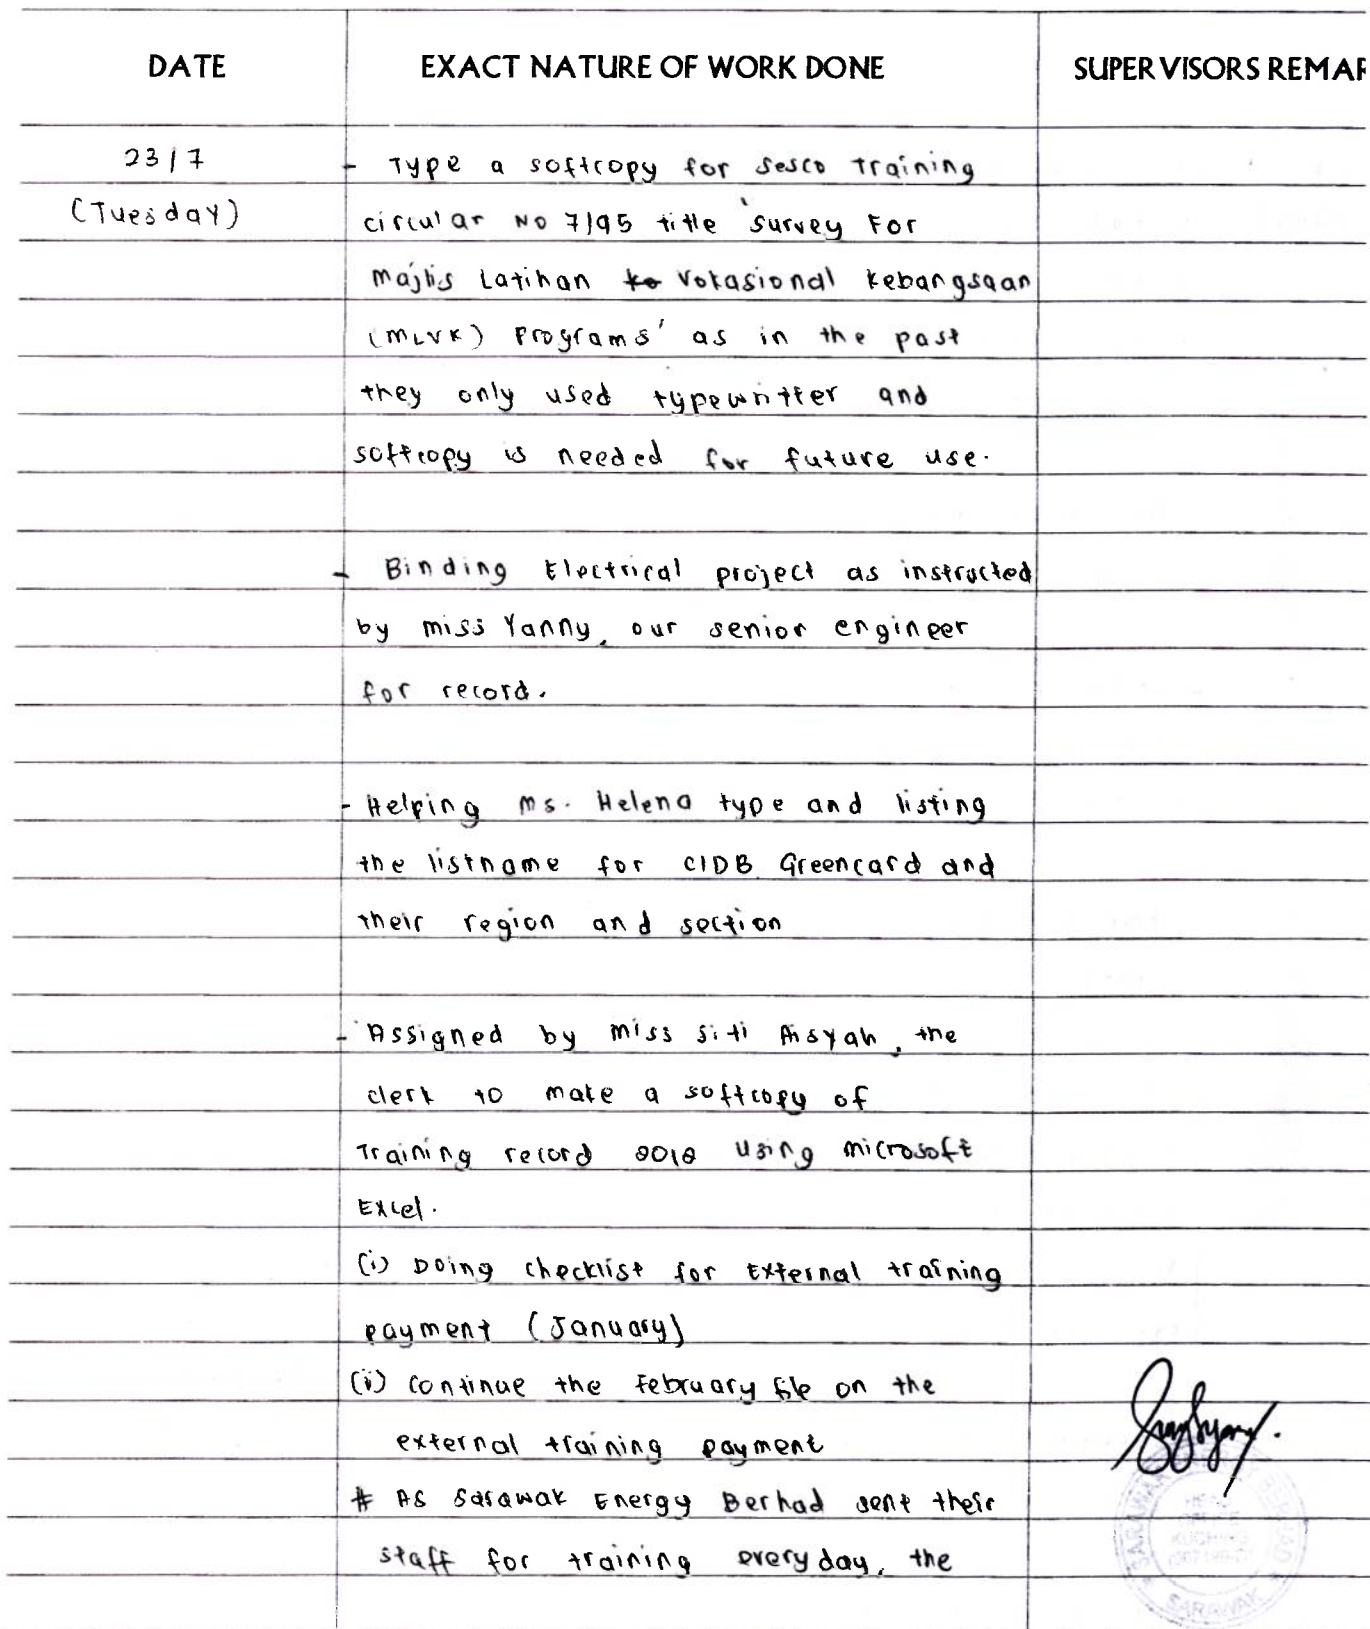 DATE EXACT NATURE OF WORK DONE SUPERVISORS REMAR
23/7 - Type a softcopy for Sesco Training
(Tuesday) circular No 7/95 title 'survey For
Majlis Latihan ko Vokasional Kebangsaan
(MLVK) Programs' as in the past
they only used typewritter and
softcopy is needed for future use.
- Binding Electrical project as instructed
by miss Yanny, our senior engineer
for record.
- Helping ms. Helena type and listing
the listname for CIDB Greencard and
their region and section
- Assigned by miss Siti Aisyah, the
clerk to make a softcopy of
Training record 2018 using microsoft
Excel.
(i) Doing checklist for External training
payment (January)
(ii) continue the February file on the
external training payment
# As Sarawak Energy Berhad sent their
staff for training everyday, the
SARAWAK
BERHAD
KUCHING
SARAWAK